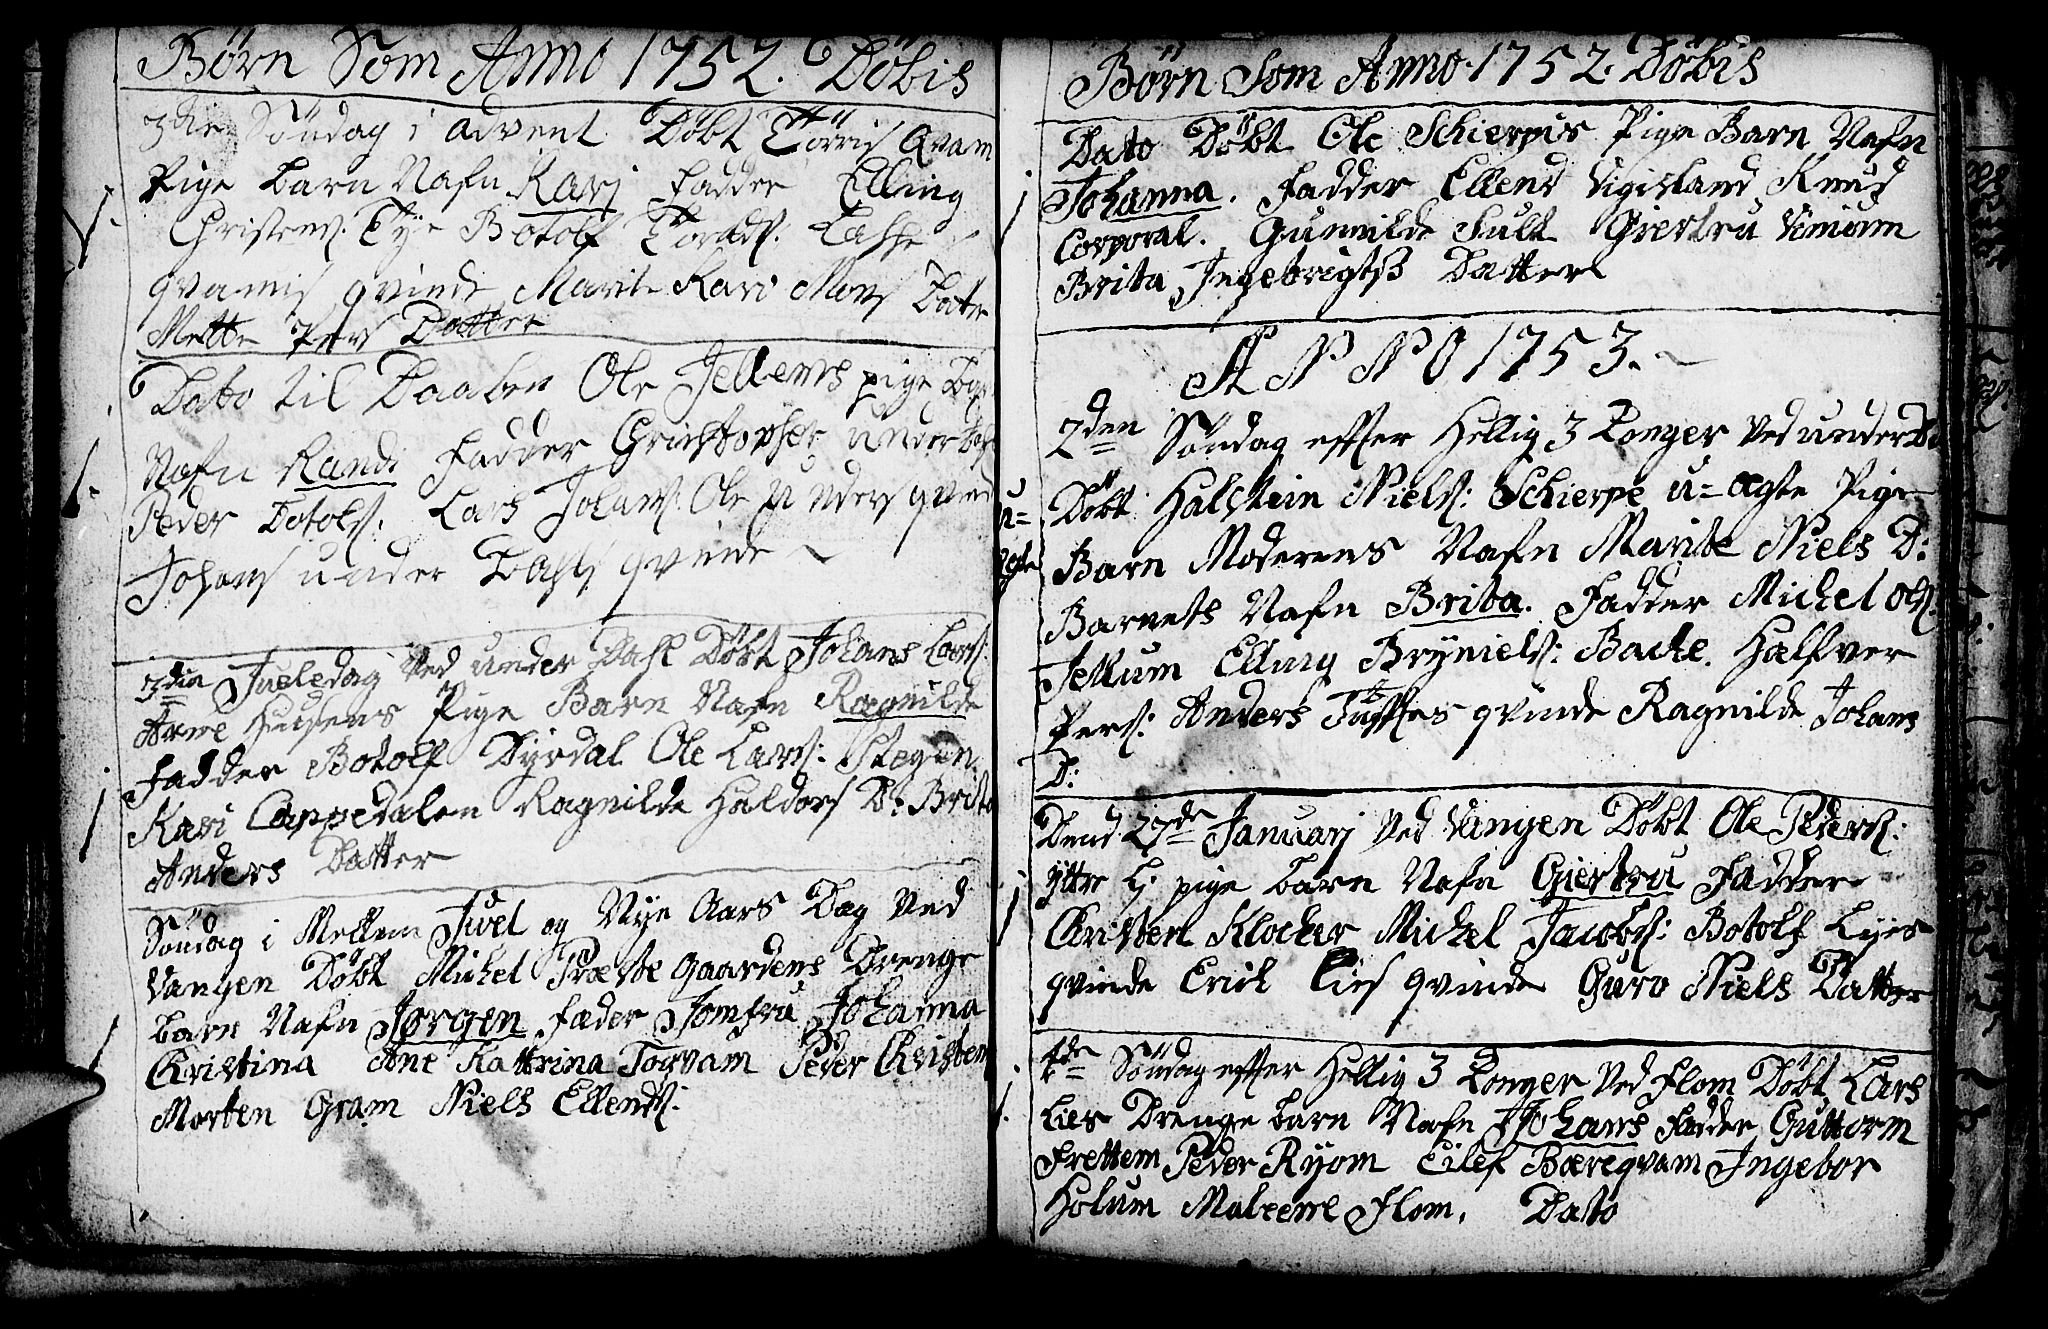 Børn Som Anno 1752. Döbis
3die Söndag i advent Döbt Torris Qvam
Pige barn Nafn Karj Fadder Elling
Christens: Tye Botolf Lasse
qvamis qvinde Marite Kari Mons Dater
Mette Pers Datter
Dato til Daaben Ole Jellems pige Bar
Nafn Randi Fadder Christopher under
Peder Botols: Lars Johans: Ole Unders qvind
Johans under Dahls qvinde
3die Jueledag Ved under Dahl Döbt Johans Lars:
Pige Barn Nafn Ragnilde
Fadder Botolf Dyrdal Ole Lars: Stegen
Kari Cappedalen Ragnilde Haldors D: Brita
Anders Datter
Söndag i Mellem Juel og Nye Aars Dag Ved
Vangen Döbt Michel Præste gaardens Drenge
barn Nafn Jørgen Fæder Jomfru Johanna
Christina Ane Kattrina Togvam Peder Christen
Morten Gram Niels Ellends:
Børn Som Anno 1752. Döbis
Dato Döbt Ole Schierpis Pige Barn Nafn
Johanna. Fadder Ellend Vigisland Knud
Corporal. Gunnilde Hult Giertru Vinium
Brita Ingebrigtß Datter
ANNO 1753.
2den Söndag effter Hellig 3 Konger Ved under Da
u=
ægte
Döbt Halstein Niels: Schierpe u=ægte Pige
Barn Moderens Nafn Marite Niels D:
Barnets Nafn Brita. Fadder Michel Ols:
Jellum Elling Bryniels: Backe. Halfver
Pers: Anders Tufftes qvinde Ragnilde Johans
D:
Dend 27de Januarj Ved Vangen Döbt Ole Peders:
Ytter Lj pige barn Nafn Giertru Fadder
Christen Klocker Michel Jacobs: Botolf Lyes
qvinde Erich Lies qvinde Guro Niels Datter
4de Söndag effter Hellig 3 Konger Ved Flom Döbt Lars
Lies Drenge barn Nafn Johans Fadder Guttorm
Frettem Peder Ryom Eilef Bæreqvam Ingebor
Holum Maleene Flom. Dato